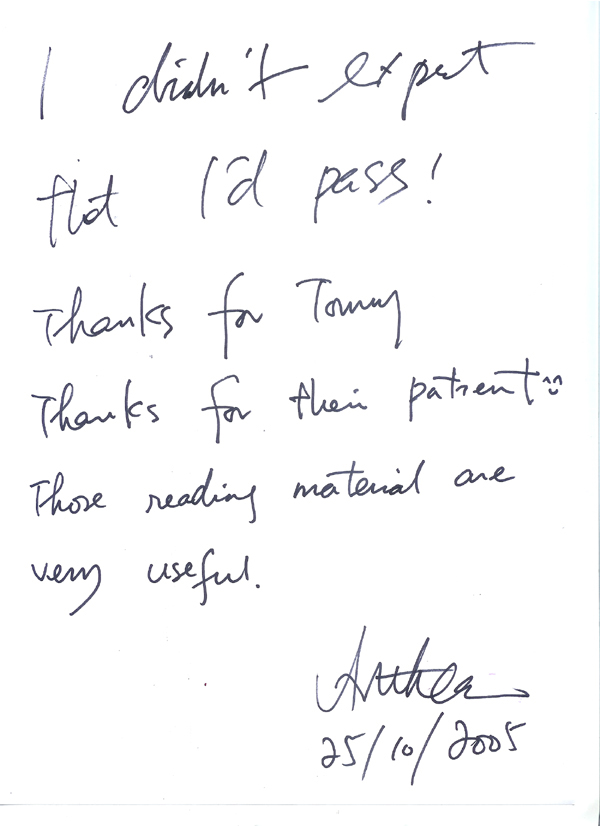 I didn't expect
that I'd pass!
Thanks for Tommy
Thanks for their patient
Those reading material are
very useful.
Anthea
25/10/2005